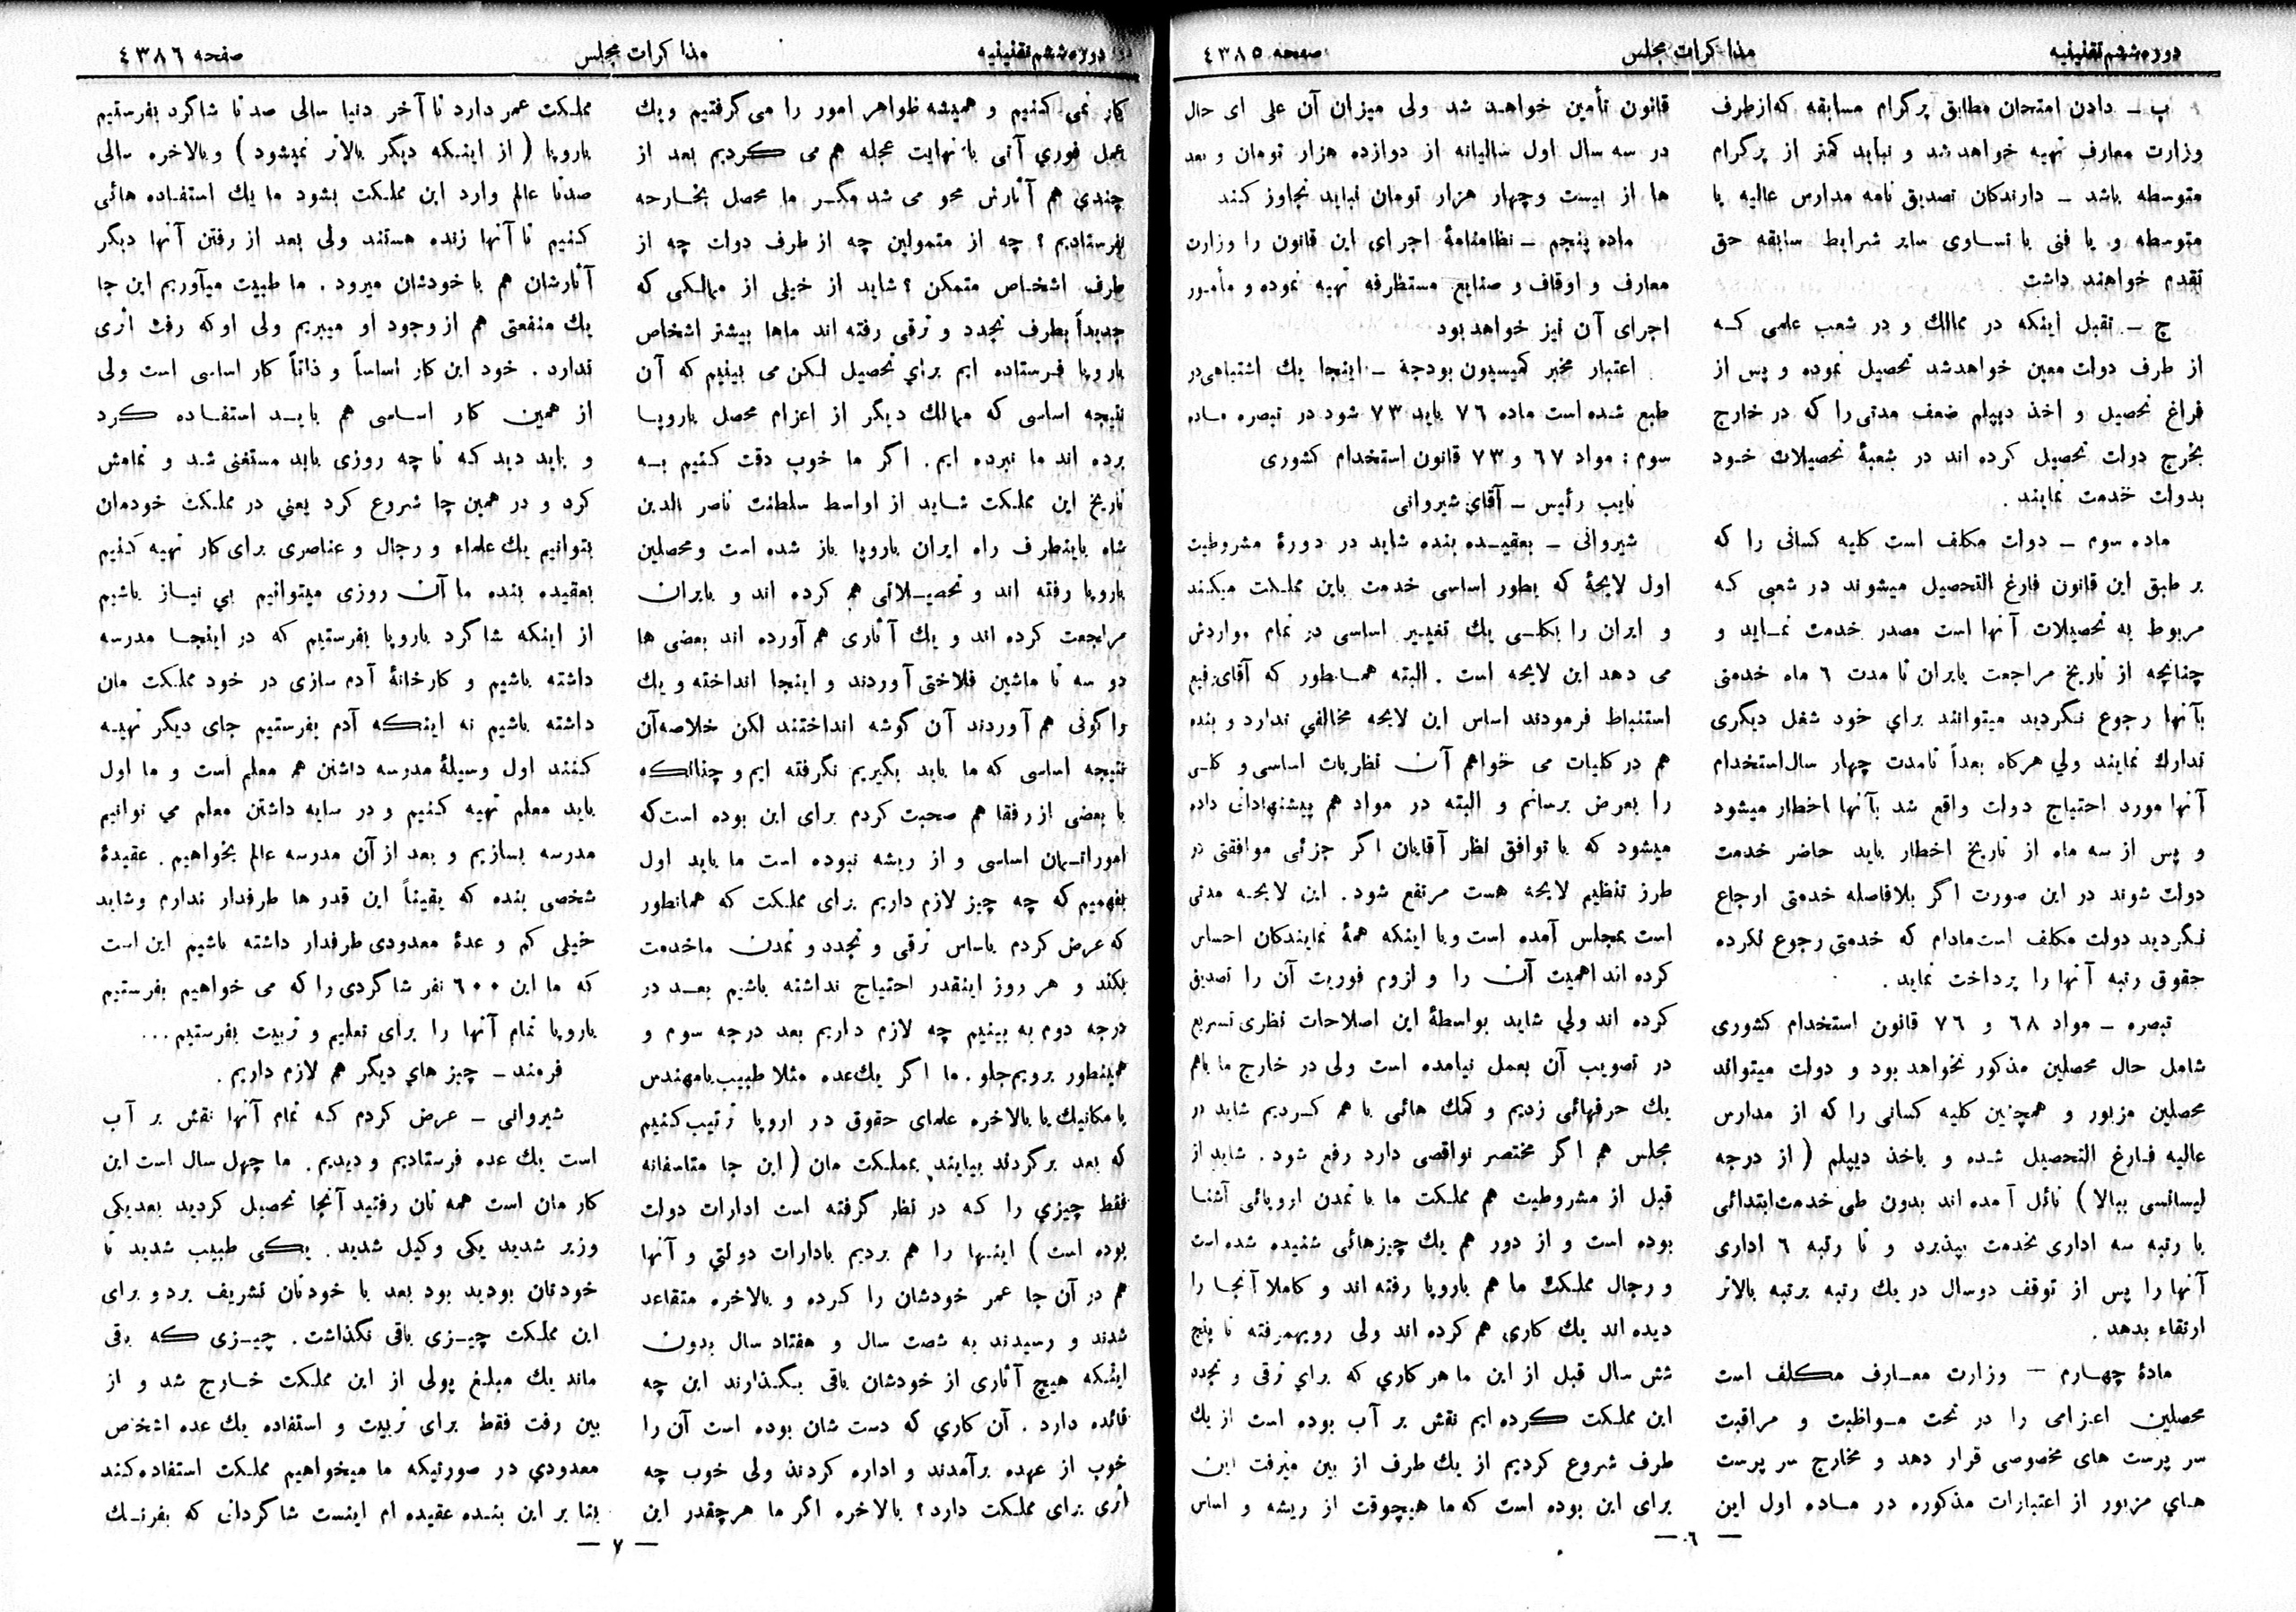 دوره ششم تقنینیه
مذاکرات مجلس
صفحه ٤٣٨٥
ب ــ دادن امتحان مطابق پرگرام مسابقه که از طرف
وزارت معارف تهیه خواهد شد و نباید کمتر از پرگرام
متوسطه باشد ــ دارندگان تصدیق نامه مدارس عالیه یا
متوسطه و یا فنی با تساوی سایر شرایط سابقه حق
تقدم خواهند داشت
ج ــ تقبل اینکه در ممالك و در شعب علمی که
از طرف دولت معین خواهد شد تحصیل نموده و پس از
فراغ تحصیل و اخذ دیپلم ضعف مدتی را که در خارج
بخرج دولت تحصیل کرده اند در شعبهٔ تحصیلات خود
بدولت خدمت نمایند .
ماده سوم ــ دولت مکلف است کلیه کسانی را که
بر طبق این قانون فارغ التحصیل میشوند در شعبی که
مربوط به تحصیلات آنها است مصدر خدمت نماید و
چنانچه از تاریخ مراجعت بایران تا مدت ٦ ماه خدمتی
بآنها رجوع نگردید میتوانند برای خود شغل دیگری
تدارك نمایند ولی هرگاه بعداً تا مدت چهار سال استخدام
آنها مورد احتیاج دولت واقع شد بآنها اخطار میشود
و پس از سه ماه از تاریخ اخطار باید حاضر خدمت
دولت شوند در این صورت اگر بلافاصله خدمتی ارجاع
نگردید دولت مکلف است مادام که خدمتی رجوع نکرده
حقوق رتبه آنها را پرداخت نماید .
تبصره ــ مواد ٦٨ و ٧٦ قانون استخدام کشوری
شامل حال محصلین مذکور نخواهد بود و دولت میتواند
محصلین مزبور و همچنین کلیه کسانی را که از مدارس
عالیه فارغ التحصیل شده و باخذ دیپلم ( از درجه
لیسانسی ببالا ) نائل آمده اند بدون طی خدمت ابتدائی
با رتبه سه اداری بخدمت بپذیرد و تا رتبه ٦ اداری
آنها را پس از توقف دوسال در یك رتبه برتبه بالاتر
ارتقاء بدهد .
مادهٔ چهارم ــ وزارت معارف مکلف است
محصلین اعزامی را در تحت مواظبت و مراقبت
سر پرست های مخصوصی قرار دهد و مخارج سر پرست
های مزبور از اعتبارات مذکوره در ماده اول این
قانون تأمین خواهد شد ولی میزان آن علی ای حال
در سه سال اول سالیانه از دوازده هزار تومان و بعد
ها از بیست و چهار هزار تومان نباید تجاوز کند
ماده پنجم ــ نظامنامهٔ اجرای این قانون را وزارت
معارف و اوقاف و صنایع مستظرفه تهیه نموده و مأمور
اجرای آن نیز خواهد بود
اعتبار مخبر کمیسیون بودجه ــ اینجا یك اشتباهی در
طبع شده است ماده ٧٦ باید ٧٣ شود در تبصره ماده
سوم : مواد ٦٧ و ٧٣ قانون استخدام کشوری
نایب رئیس ــ آقای شیروانی
شیروانی ــ بعقیده بنده شاید در دورهٔ مشروطیت
اول لایحهٔ که بطور اساسی خدمت باین مملکت میکند
و ایران را بکلی یك تغییر اساسی در تمام مواردش
می دهد این لایحه است . البته همانطور که آقای رفیع
استنباط فرمودند اساس این لایحه مخالفی ندارد و بنده
هم در کلیات می خواهم آن نظریات اساسی و کلی
را بعرض برسانم و البته در مواد هم پیشنهاداتی داده
میشود که با توافق نظر آقایان اگر جزئی موافقتی در
طرز تنظیم لایحه هست مرتفع شود . این لایحه مدتی
است بمجلس آمده است و با اینکه همهٔ نمایندگان احساس
کرده اند اهمیت آن را و لزوم فوریت آن را تصدیق
کرده اند ولی شاید بواسطهٔ این اصلاحات نظری تسریع
در تصویب آن بعمل نیامده است ولی در خارج ما باهم
یك حرفهائی زدیم و کمك هائی با هم کردیم شاید در
مجلس هم اگر مختصر نواقصی دارد رفع شود . شاید از
قبل از مشروطیت هم مملکت ما با تمدن اروپائی آشنا
بوده است و از دور هم یك چیزهائی شنیده شده است
و رجال مملکت ما هم باروپا رفته اند و کاملا آنجا را
دیده اند یك کاری هم کرده اند ولی رویهمرفته تا پنج
شش سال قبل از این ما هر کاری که برای ترقی و تجدد
این مملکت کرده ایم نقش بر آب بوده است از یك
طرف شروع کردیم از یك طرف از بین میرفت این
برای این بوده است که ما هیچوقت از ریشه و اساس
ــ ٦ ــ
دوره ششم تقنینیه
مذاکرات مجلس
صفحه ٤٣٨٦
کار نمی کنیم و همیشه ظواهر امور را می گرفتیم و یك
عمل فوری آنی با نهایت عجله هم می کردیم بعد از
چندی هم آثارش محو می شد مگر ما محصل بخارجه
نفرستادیم ؟ چه از متمولین چه از طرف دولت چه از
طرف اشخاص متمکن ؟ شاید از خیلی از ممالکی که
جدیداً بطرف تجدد و ترقی رفته اند ماها بیشتر اشخاص
باروپا فرستاده ایم برای تحصیل لکن می بینیم که آن
نتیجه اساسی که ممالك دیگر از اعزام محصل باروپا
برده اند ما نبرده ایم . اگر ما خوب دقت کنیم به
تاریخ این مملکت شاید از اواسط سلطنت ناصر الدین
شاه باینطرف راه ایران باروپا باز شده است و محصلین
باروپا رفته اند و تحصیلاتی هم کرده اند و بایران
مراجعت کرده اند و یك آثاری هم آورده اند بعضی ها
دو سه تا ماشین فلاختی آوردند و اینجا انداخته و یك
واگونی هم آوردند آن گوشه انداختند لکن خلاصه آن
نتیجه اساسی که ما باید بگیریم نگرفته ایم و چنانکه
با بعضی از رفقا هم صحبت کردم برای این بوده است که
امورانسمان اساسی و از ریشه نبوده است ما باید اول
بفهمیم که چه چیز لازم داریم برای مملکت که همانطور
که عرض کردم باساس ترقی و تجدد و تمدن ما خدمت
بکند و هر روز اینقدر احتیاج نداشته باشیم بعد در
درجه دوم به بینیم چه لازم داریم بعد درجه سوم و
همینطور برویم جلو . ما اگر یك عده مثلا طبیب یا مهندس
یا مکانیك یا بالاخره علمای حقوق در اروپا ترتیب کنیم
که بعد برگردند بیایند بمملکت مان ( این جا متاسفانه
فقط چیزی را که در نظر گرفته است ادارات دولت
بوده است ) اینها را هم بردیم بادارات دولتی و آنها
هم در آن جا عمر خودشان را کرده و بالاخره متقاعد
شدند و رسیدند به شصت سال و هفتاد سال بدون
اینکه هیچ آثاری از خودشان باقی بگذارند این چه
فائده دارد . آن کاری که دست شان بوده است آن را
خوب از عهده برآمدند و اداره کردند ولی خوب چه
اثری برای مملکت دارد ؟ بالاخره اگر ما هر چقدر این
مملکت عمر دارد تا آخر دنیا سالی صد تا شاگرد بفرستیم
باروپا ( از اینکه دیگر بالاتر نمیشود ) و بالاخره سالی
صد تا عالم وارد این مملکت بشود ما یك استفاده هائی
کنیم تا آنها زنده هستند ولی بعد از رفتن آنها دیگر
آثارشان هم با خودشان میرود . ما طبیب میآوریم این جا
یك منفعتی هم از وجود او میبریم ولی او که رفت اثری
ندارد . خود این کار اساساً و ذاتاً کار اساسی است ولی
از همین کار اساسی هم باید استفاده کرد
و باید دید که تا چه روزی باید مستغنی شد و تمامش
کرد و در همین جا شروع کرد یعنی در مملکت خودمان
بتوانیم یك علماء و رجال و عناصری برای کار تهیه کنیم
بعقیده بنده ما آن روزی میتوانیم بی نیاز باشیم
از اینکه شاگرد باروپا بفرستیم که در اینجا مدرسه
داشته باشیم و کارخانهٔ آدم سازی در خود مملکت مان
داشته باشیم نه اینکه آدم بفرستیم جای دیگر تهیه
کنند اول وسیلهٔ مدرسه داشتن هم معلم است و ما اول
باید معلم تهیه کنیم و در سایه داشتن معلم می توانیم
مدرسه بسازیم و بعد از آن مدرسه عالم بخواهیم . عقیدهٔ
شخصی بنده که یقیناً این قدر ها طرفدار ندارم و شاید
خیلی کم و عدهٔ معدودی طرفدار داشته باشیم این است
که ما این ٦٠٠ نفر شاگردی را که می خواهیم بفرستیم
باروپا تمام آنها را برای تعلیم و تربیت بفرستیم ...
فرمند ــ چیز های دیگر هم لازم داریم .
شیروانی ــ عرض کردم که تمام آنها نقش بر آب
است یك عده فرستادیم و دیدیم . ما چهل سال است این
کار مان است همه تان رفتید آنجا تحصیل کردید بعد یکی
وزیر شدید یکی وکیل شدید . یکی طبیب شدید تا
خودتان بودید بود بعد با خودتان تشریف برد و برای
این مملکت چیزی باقی نگذاشت . چیزی که باقی
ماند یك مبلغ پولی از این مملکت خارج شد و از
بین رفت فقط برای تربیت و استفاده یك عده اشخص
معدودی در صورتیکه ما میخواهیم مملکت استفاده کند
بنا بر این بنده عقیده ام اینست شاگردانی که بفرنك
ــ ٧ ــ